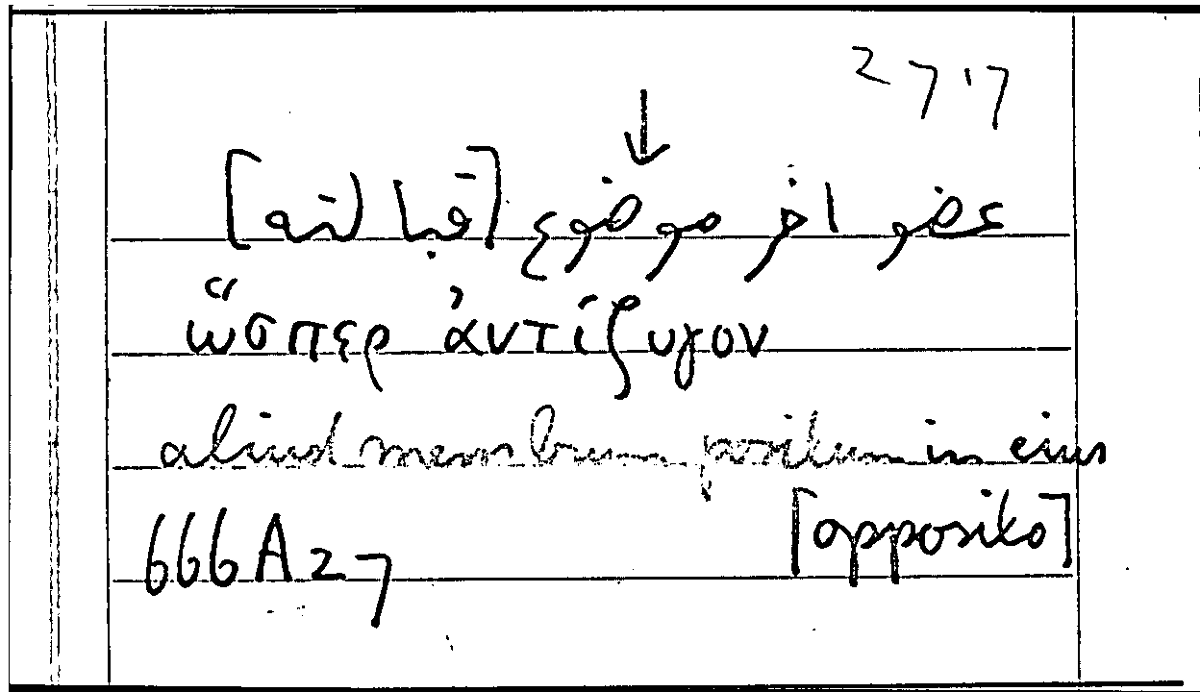 27'7
عضو اخر موضوع [قبالته]
ὥσπερ ἀντίζυγον
aliud membrum positum in eius
[opposito]
666A27